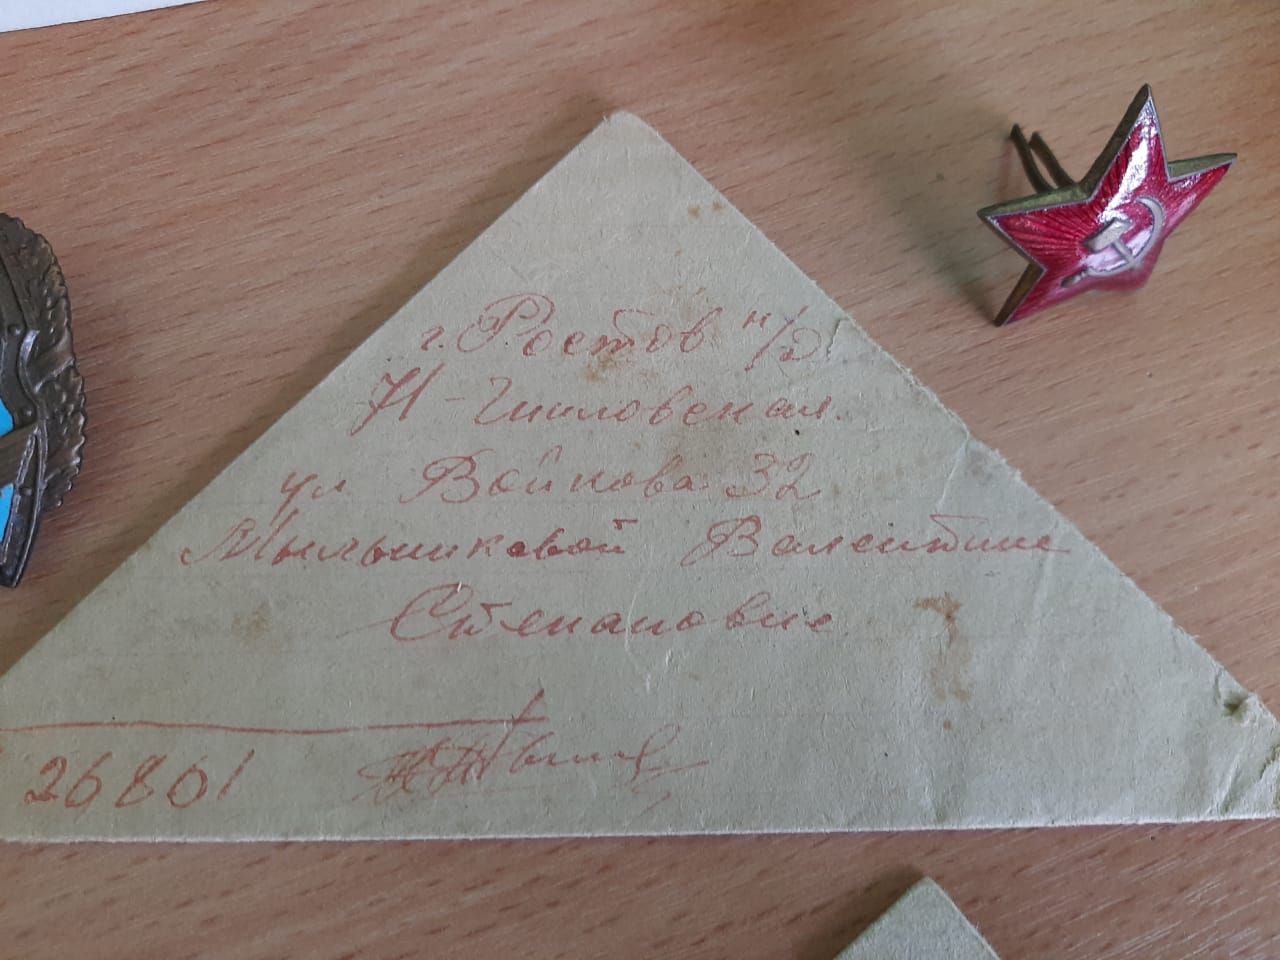 г. Ростов н/Д
Н-Гниловская.
ул Войкова 32
Мыльниковой Валентине
Степановне
26801